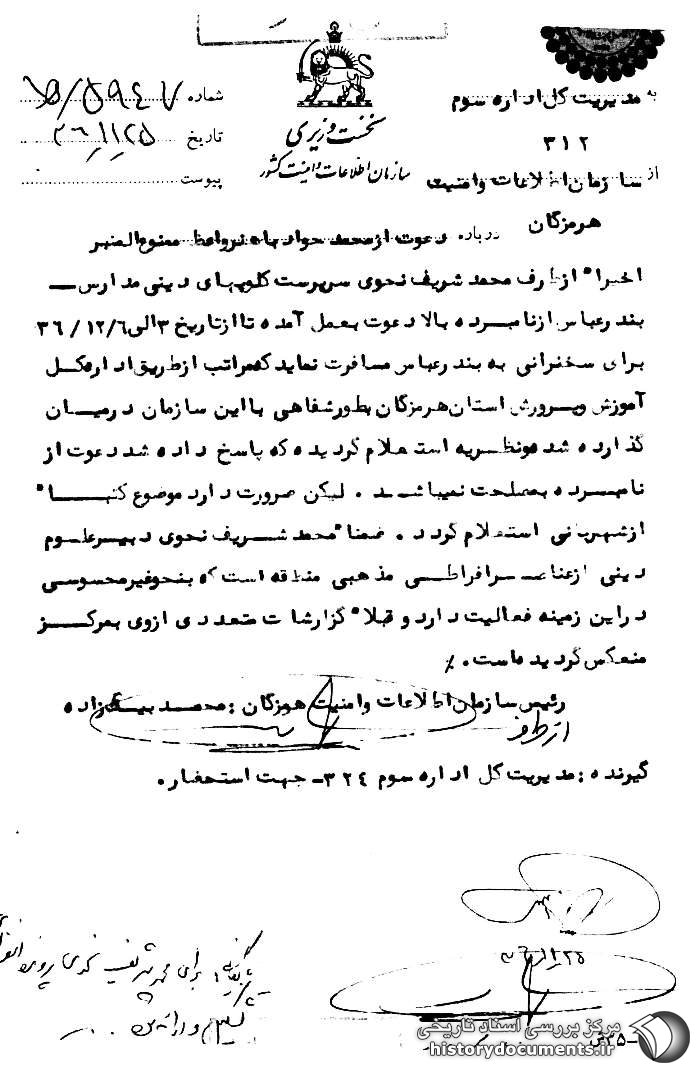 به مدیریت کل اداره سوم
۳۱۲
از سازمان اطلاعات وامنیت
هرمزگان
نخست وزیری
سازمان اطلاعات و امنیت کشور
شماره
تاریخ ۳۶/۱۱/۲۵
پیوست
درباره دعوت ازمحمد جواد باهنرواعظ ممنوع المنبر
اخیرا" ازطرف محمد شریف نحوی سرپرست کلوپهای دینی مدارس
بندرعباس ازنامبرده بالا دعوت بعمل آمده تا ازتاریخ ۳الی ۳۶/۱۲/۶
برای سخنرانی به بندرعباس مسافرت نماید که مراتب ازطریق اداره کل
آموزش وپرورش استان هرمزگان بطورشفاهی بااین سازمان درمیان
گذارده شده ونظریه استعلام گردیده که پاسخ داده شد دعوت از
نامبرده بمصلحت نمیباشد . لیکن ضرورت دارد موضوع کتبا"
ازشهربانی استعلام گردد . ضمنا" محمد شریف نحوی دبیرعلوم
دینی ازعناصرافراطی مذهبی منطقه است که بنحوغیرمحسوسی
دراین زمینه فعالیت دارد و قبلا" گزارشات متعددی ازوی بمرکز
منعکس گردیده است . /
رئیس سازمان اطلاعات وامنیت هرمزگان : محمد
از طرف
گیرنده : مدیریت کل اداره سوم ۳۲۴ـ جهت استحضار .
بایگانی برای محمد شریف نحوی پرونده
مرکز بررسی اسناد تاریخی
historydocuments.ir